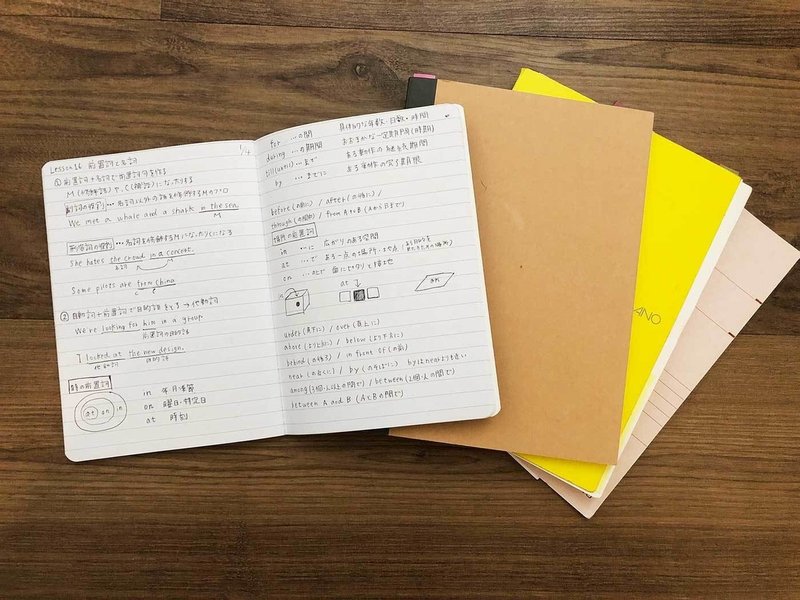 Lesson 16 前置詞と名詞
1/4
① 前置詞+名詞で前置詞句を作る
M(修飾語)や、C(補語)になったりする
副詞の役割 … 名詞以外の語を修飾するMのプロ
We met a whale and a shark in the sea.
M
形容詞の役割 … 名詞を修飾するMになったりCになる
She hates the crowd in a concert.
名詞
Some pilots are from China
C
② 自動詞+前置詞で目的語をとる → 他動詞
We're looking for him in a group.
前置詞の目的語
I looked at the new design.
他動詞 目的語
時の前置詞
at on in
in 年・月・季節
on 曜日・特定日
at 時刻
for …の間 具体的な年数・日数・時間
during …の期間 おおまかな一定期間(時期)
till(until) …まで ある動作の継続期間
by …までに ある動作の完了期限
before(の前に) / after(の後に) /
through(の間中) / from A to B (AからBまで)
場所の前置詞
in …に 広がりのある空間
at …で ある一点の場所
on …の上で 面にピタリと接地
in
at
on
under(真下に) / over(真上に)
above(より上に) / below(より下方に)
behind(の後ろ) / in front of(の前)
near(の近くに) / by(のそばに) byはnearよりも近い
among(3個・人以上の間で) / between(2個・人の間で)
between A and B (AとBの間で)
ANO